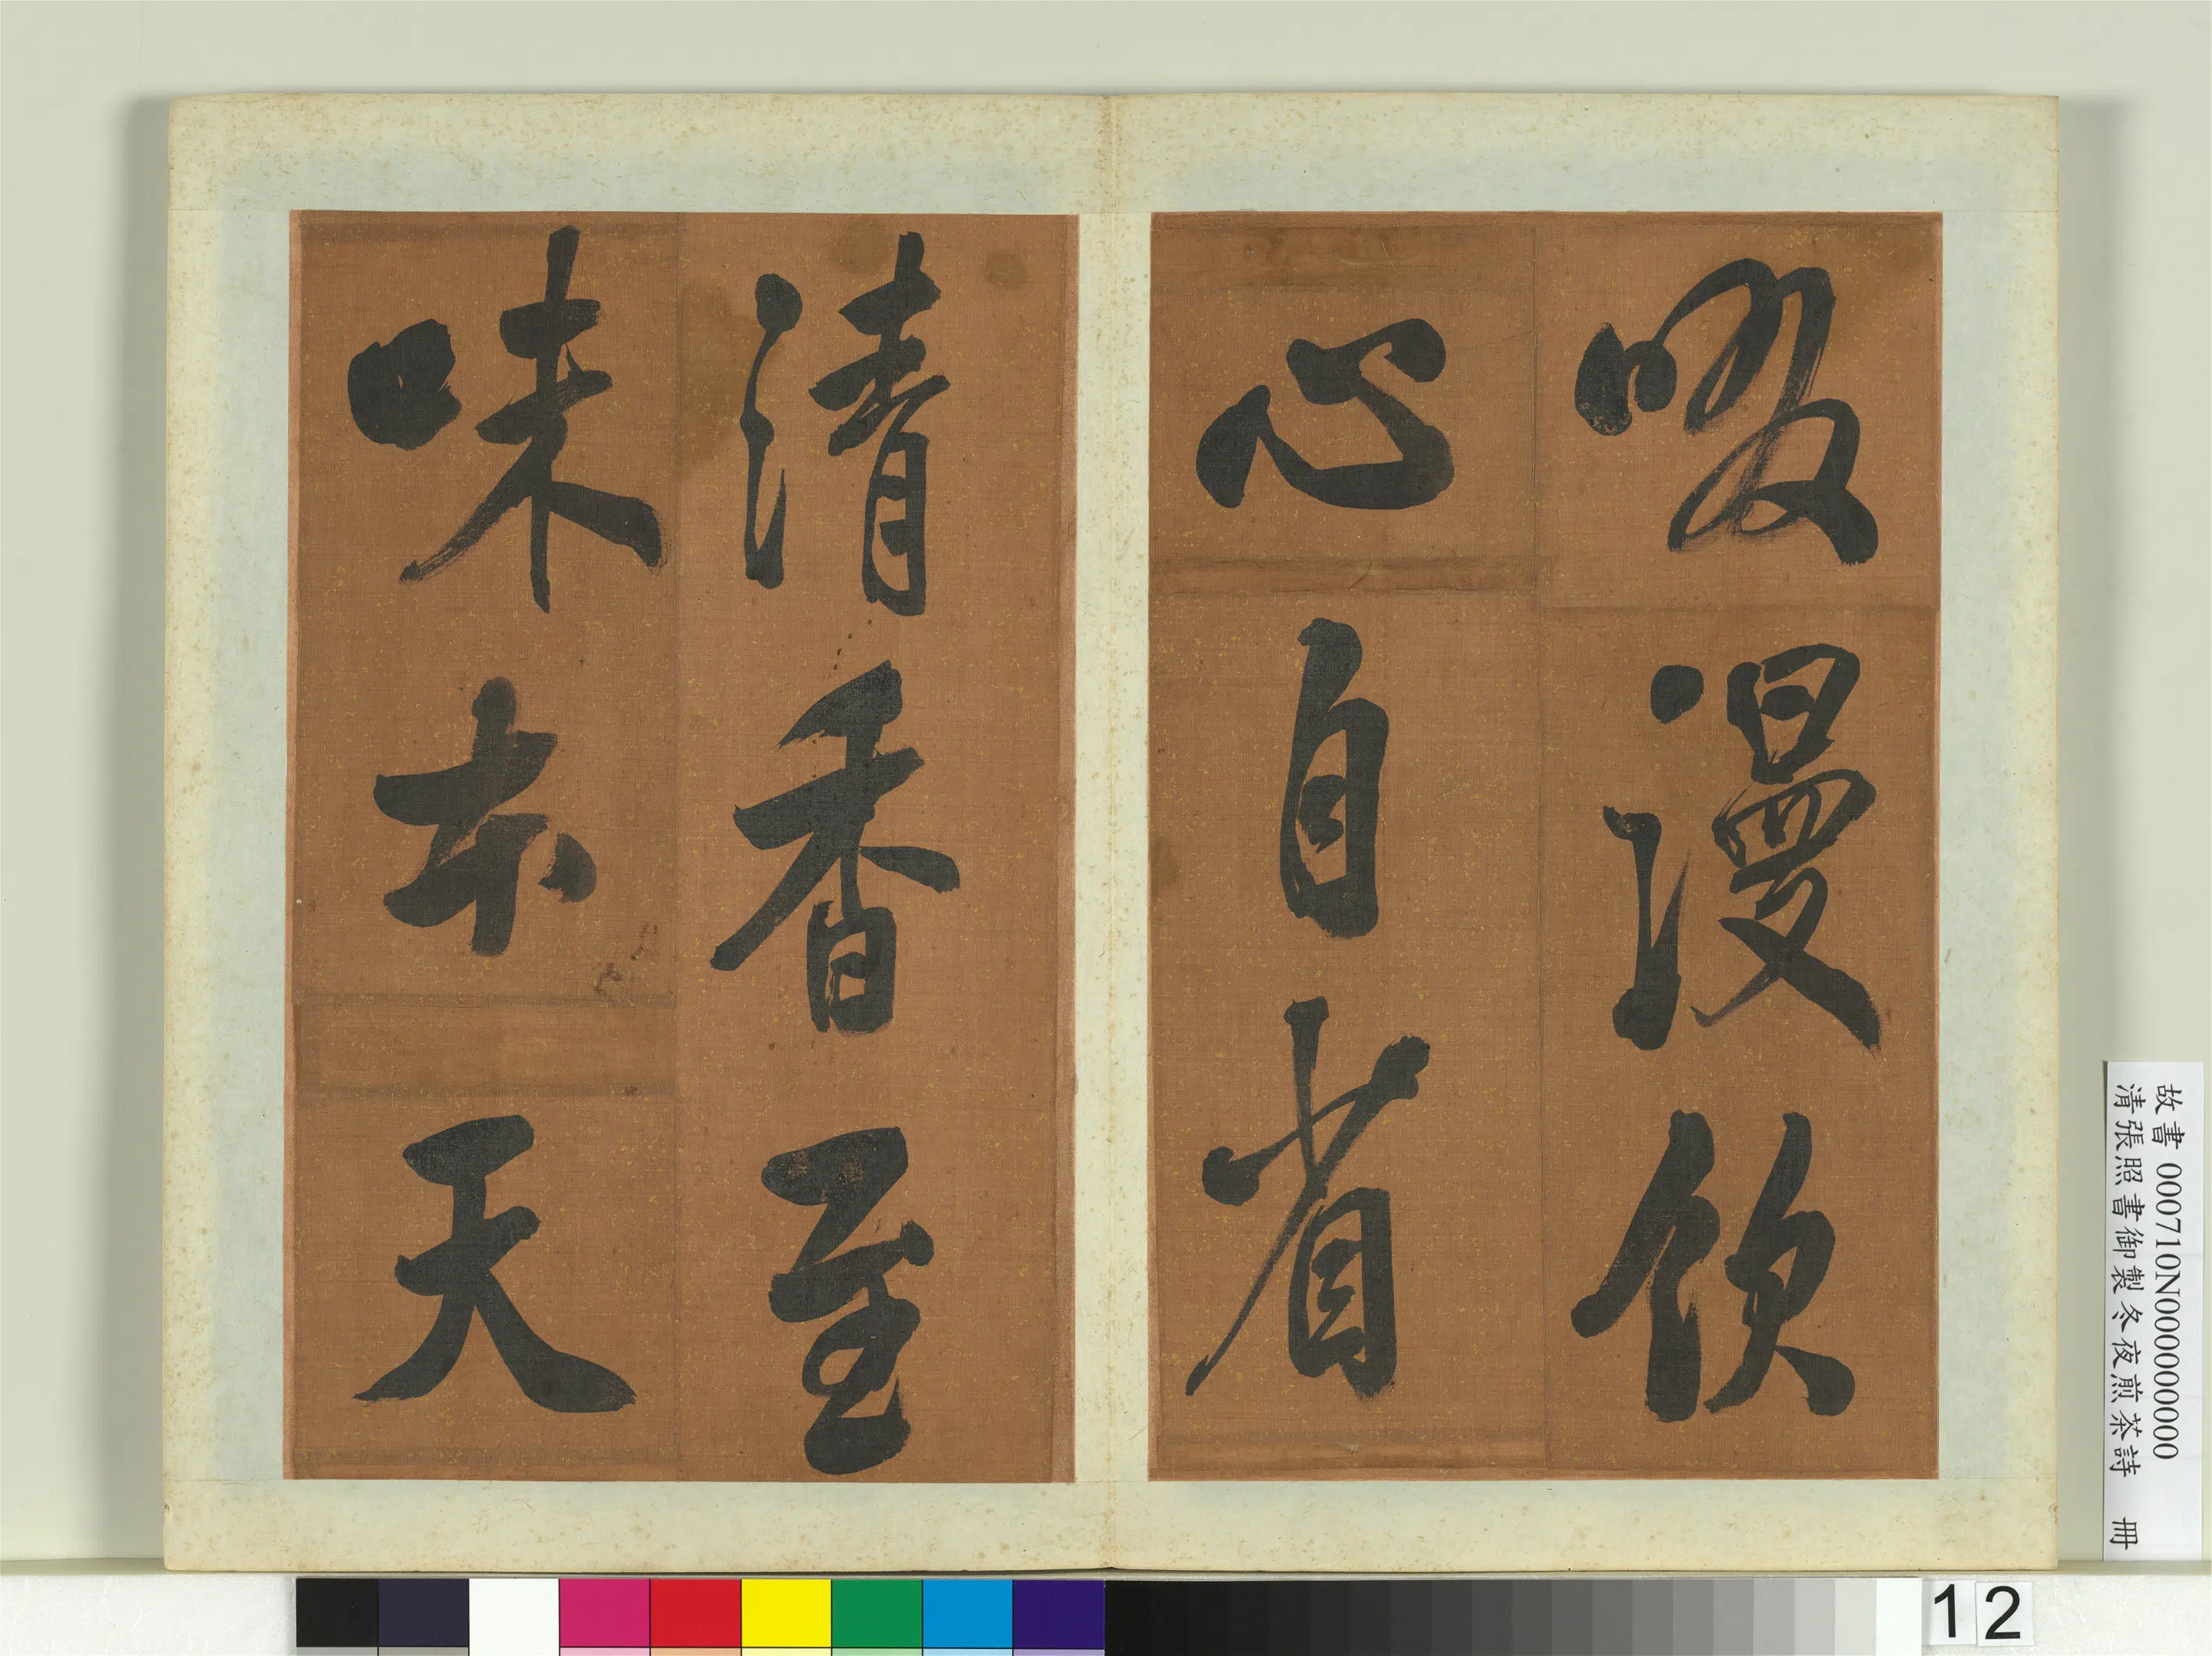 啜漫飲
心自省
清香至
味本天
故書 000710N000000000
清張照書御製冬夜煎茶詩 冊
12